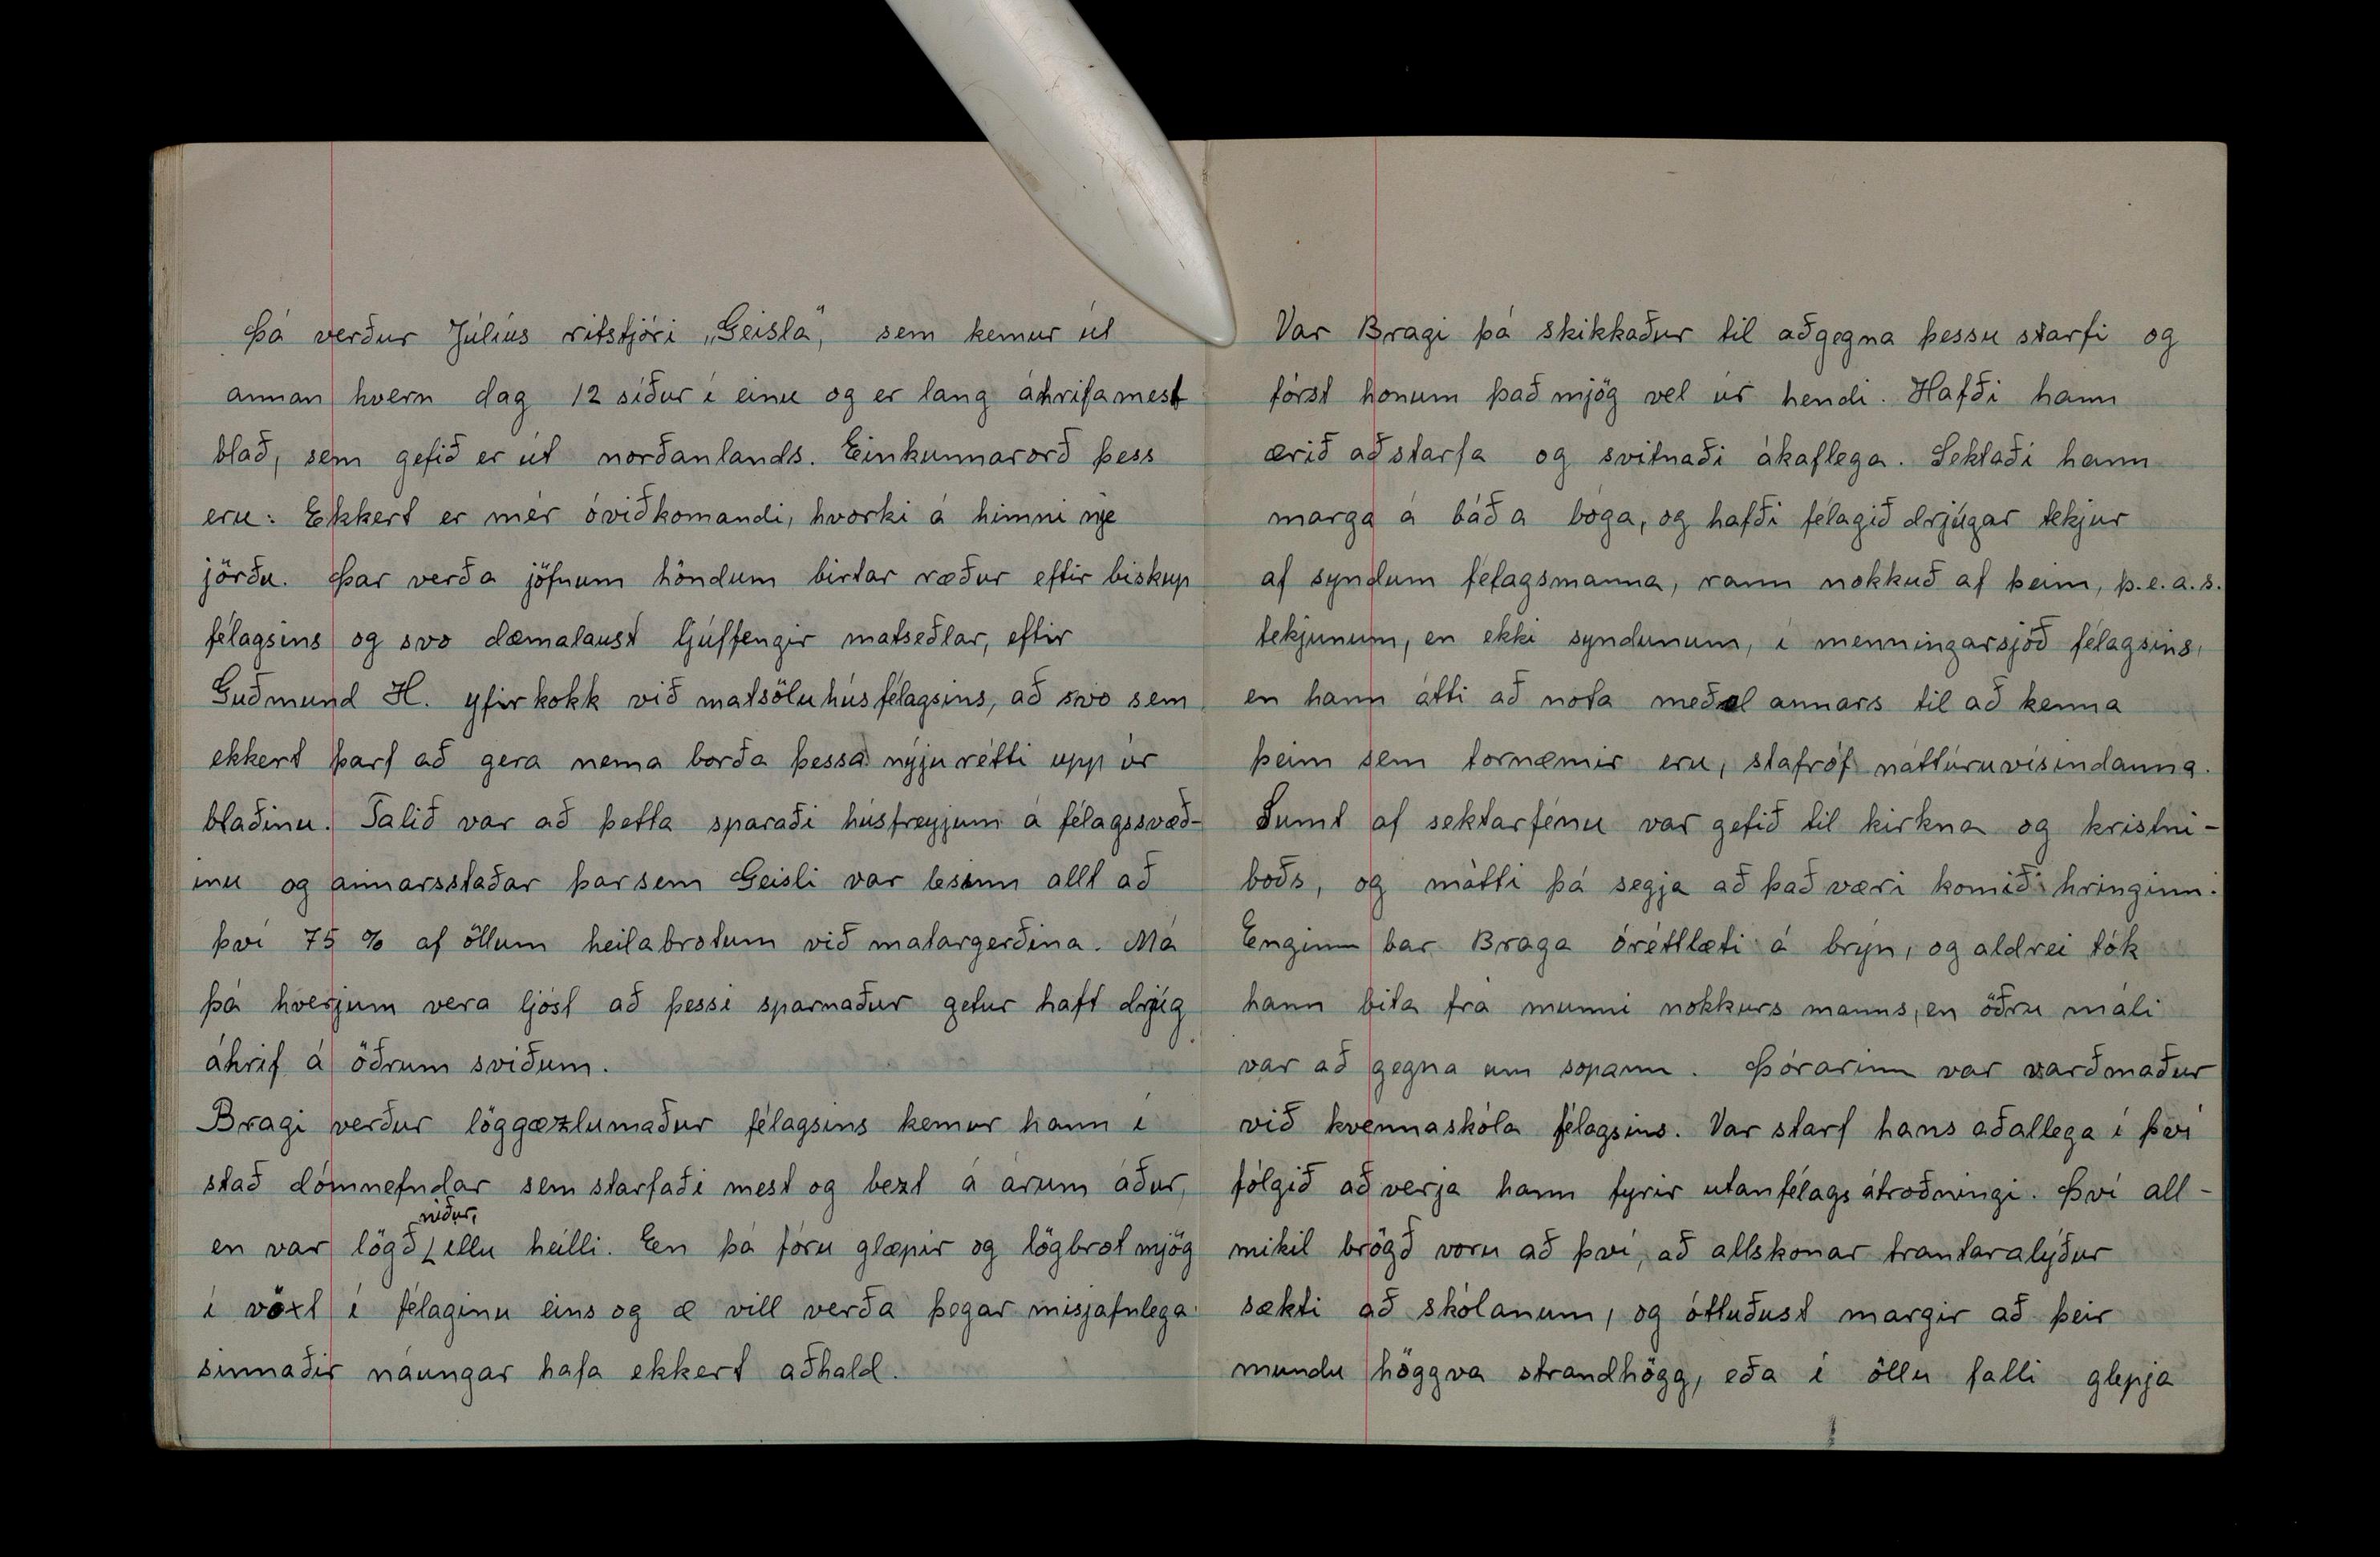 Þá verður Júlíus ritstjóri „Geisla“, sem kemur út
annan hvern dag 12 síður í einu og er lang áhrifamest
blað, sem gefið er út norðanlands. Einkunnarorð þess
eru: Ekkert er mér óviðkomandi, hvorki á himni nje
jörðu. Þar verða jöfnum höndum birtar ræður eftir biskup
félagsins og svo dæmalaust ljúffengir matseðlar, eftir
Guðmund H. yfirkokk við matsöluhús félagsins, að svo sem
ekkert þarf að gera nema borða þessa nýju rétti upp úr
blaðinu. Talið var að þetta sparaði húsfreyjum á félagssvæð-
inu og annarsstaðar þar sem Geisli var lesinn allt að
því 75 % af öllum heilabrotum við matargerðina. Má
þá hverjum vera ljóst að þessi sparnaður getur haft drjúg
áhrif á öðrum sviðum.
Bragi verður löggæzlumaður félagsins kemur hann í
stað dómnefndar sem starfaði mest og bezt á árum áður,
niður,
en var lögð illu heilli. En þá fóru glæpir og lögbrot mjög
í vöxt í félaginu eins og æ vill verða þegar misjafnlega
sinnaðir náungar hafa ekkert aðhald.
Var Bragi þá skikkaður til að gegna þessu starfi og
fórst honum það mjög vel úr hendi. Hafði hann
ærið að starfa og svitnaði ákaflega. Sektaði hann
marga á báða bóga, og hafði félagið drjúgar tekjur
af syndum félagsmanna, rann nokkuð af þeim, þ.e.a.s.
tekjunum, en ekki syndunum, í menningarsjóð félagsins,
en hann átti að nota meðal annars til að kenna
þeim sem tornæmir eru, stafróf náttúruvísindanna.
Sumt af sektarfénu var gefið til kirkna og kristni-
boðs, og mátti þá segja að það væri komið í hringinn.
Enginn bar Braga óréttlæti á brýn, og aldrei tók
hann bita frá munni nokkurs manns, en öðru máli
var að gegna um sopann. Þórarinn var varðmaður
við kvennaskóla félagsins. Var starf hans aðallega í því
fólgið að verja hann fyrir utanfélags átroðningi. Því all-
mikil brögð voru að því, að allskonar trantaralýður
sækti að skólanum, og óttuðust margir að þeir
mundu höggva strandhögg, eða í öllu falli glepja